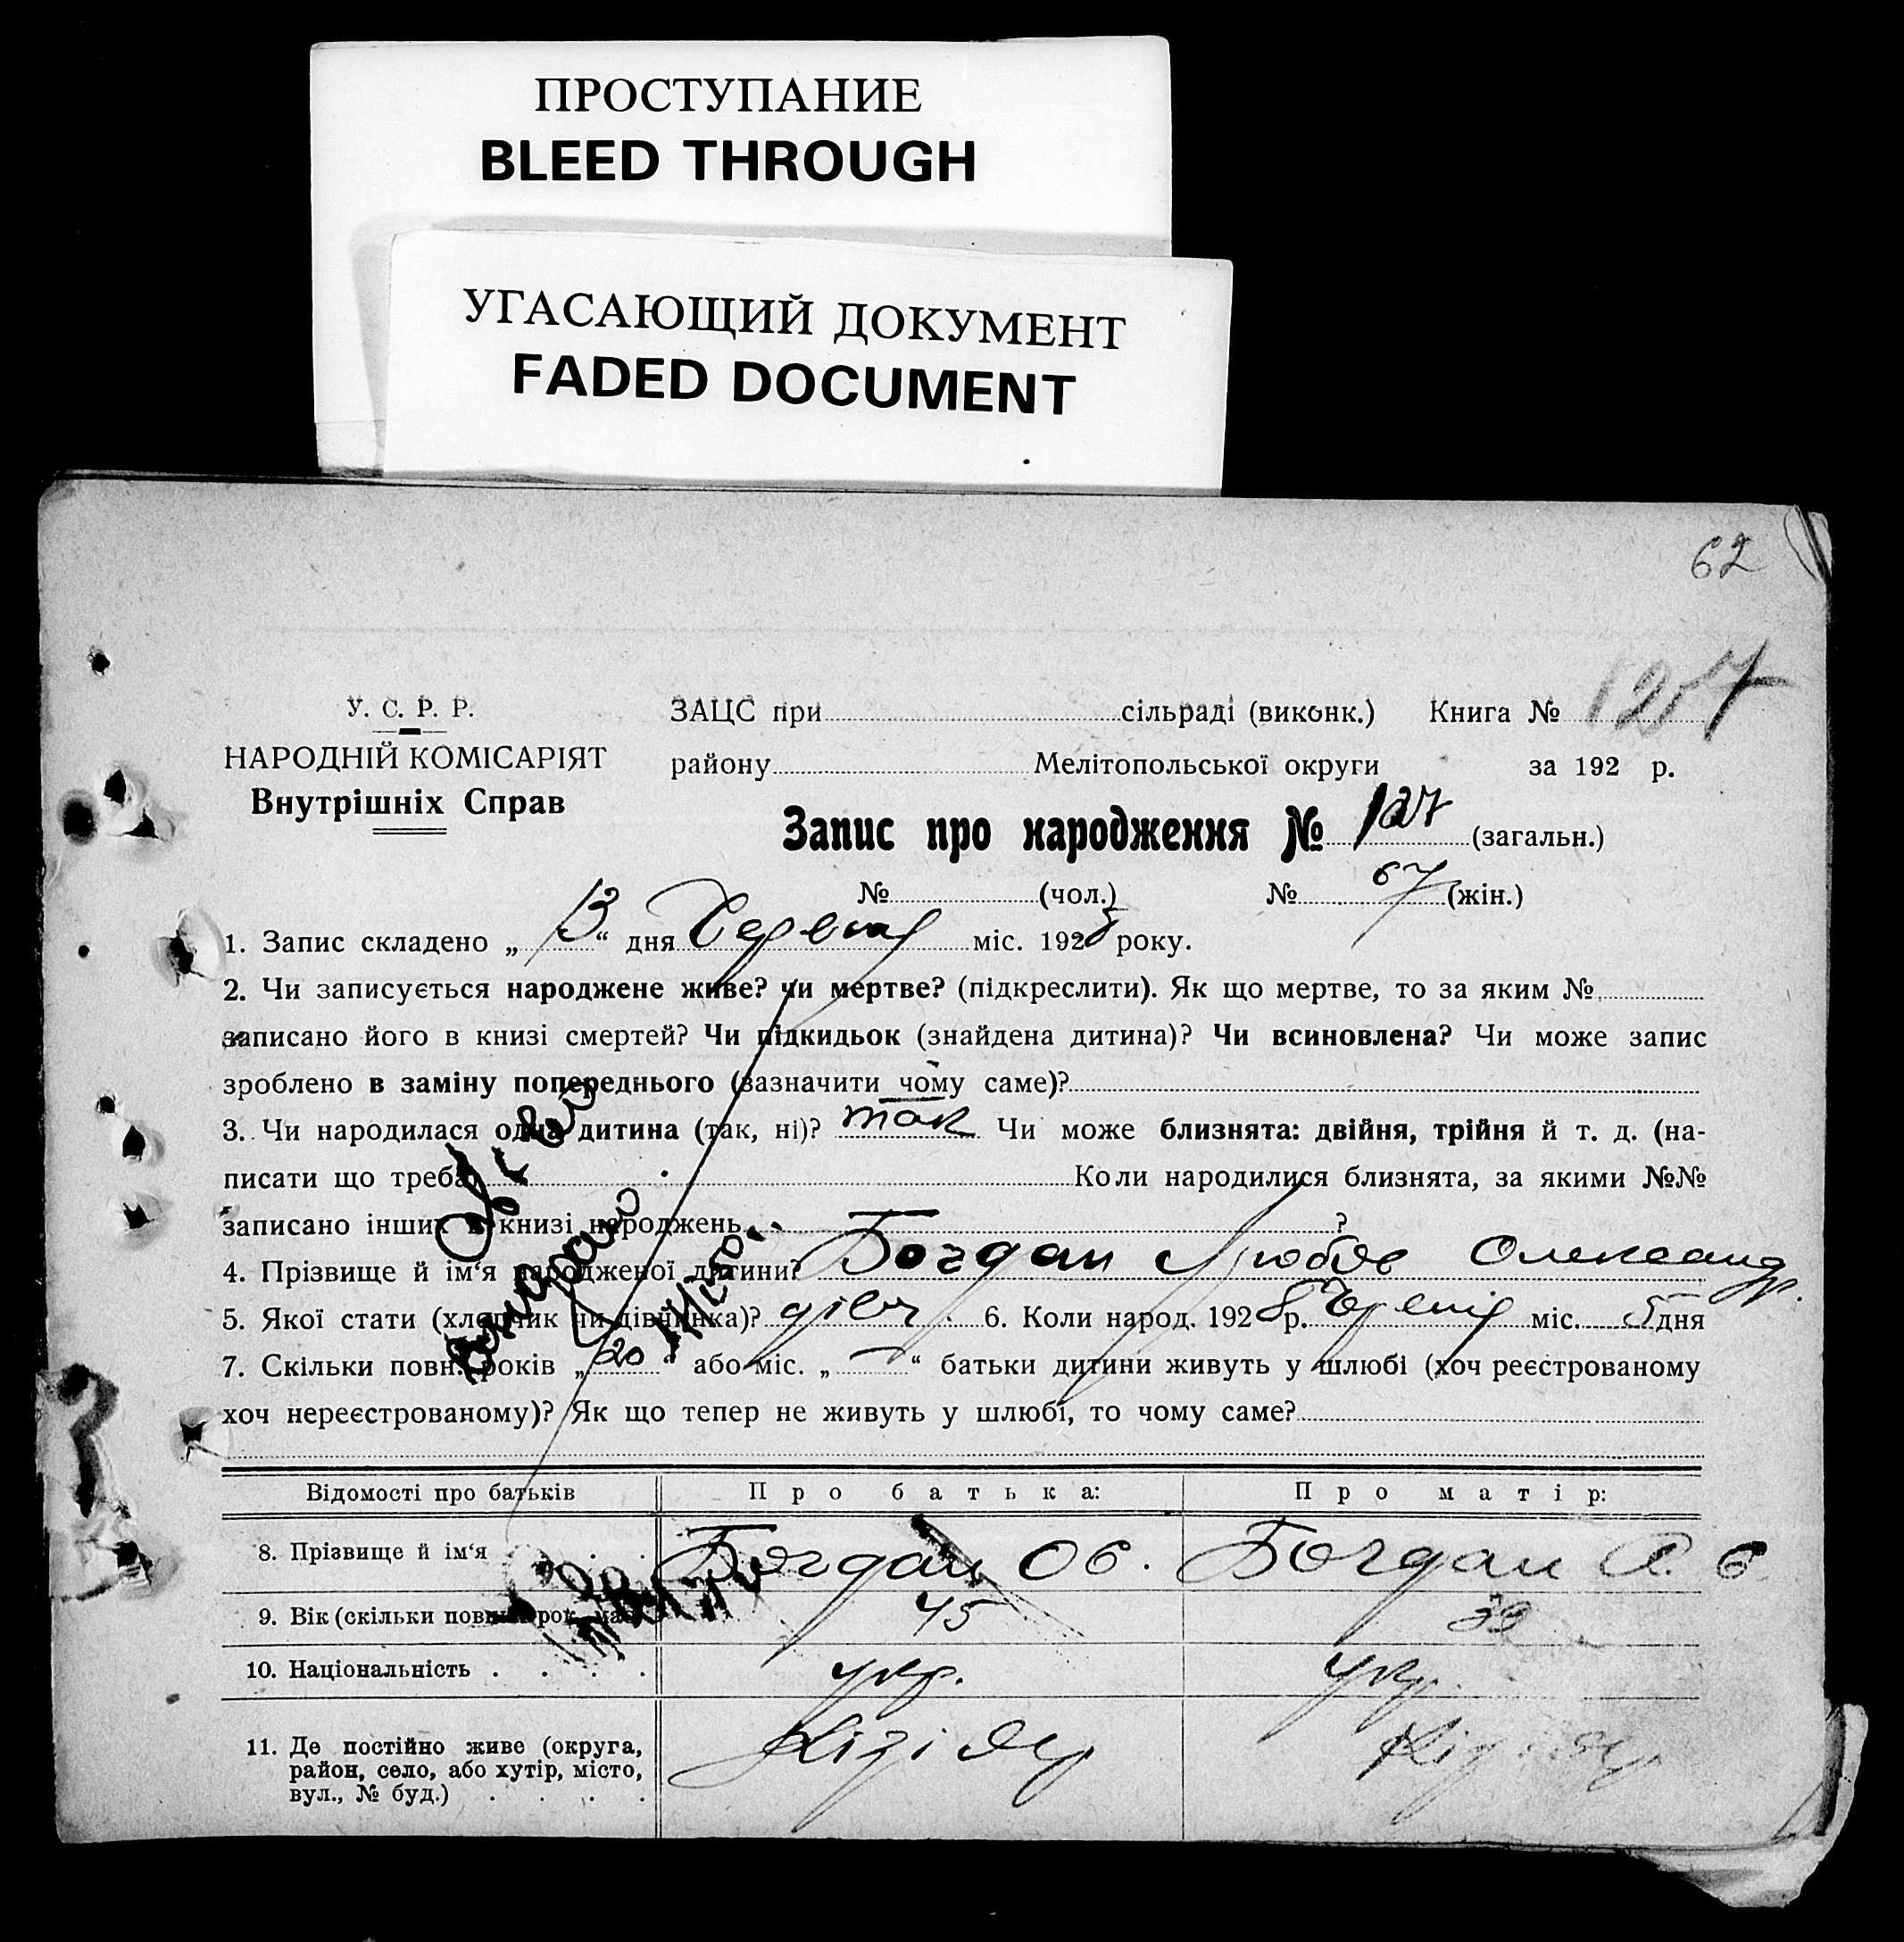 ПРОСТУПАНИЕ
BLEED THROUGH
УГАСАЮЩИЙ ДОКУМЕНТ
FADED DOCUMENT
62
У. С. Р. Р.
НАРОДНІЙ КОМІСАРІЯТ
Внутрішніх Справ
ЗАЦС при сільраді (виконк.) Книга №
району Мелітопольської округи за 192 р.
Запис про народження № 127 (загальн.)
№ (чол.) № 67 (жін.)
1. Запис складено „ 13 “ дня Червня міс. 1928 року.
2. Чи записується народжене живе? чи мертве? (підкреслити). Як що мертве, то за яким №
записано його в книзі смертей? Чи підкидьок (знайдена дитина)? Чи всиновлена? Чи може запис
зроблено в заміну попереднього (зазначити чому саме)?
3. Чи народилася одна дитина (так, ні)? так Чи може близнята: двійня, трійня й т. д. (на-
писати що треба) Коли народилися близнята, за якими №№
записано інших в книзі народжень ?
4. Прізвище й ім‘я народженої дитини? Богдан Любов Олександр.
5. Якої стати (хлопчик чи дівчинка)? дівч. 6. Коли народ. 1928 р. Червня міс. 5 дня
7. Скільки повн. років „ 20 “ або міс. „ — “ батьки дитини живуть у шлюбі (хоч реєстрованому
хоч нереєстрованому)? Як що тепер не живуть у шлюбі, то чому саме?
Відомості про батьків Про батька: Про матір:
8. Прізвище й ім‘я Богдан О. Богдан
9. Вік (скільки повних рок. має) 45 39
10. Національність укр. укр.
11. Де постійно живе (округа,
район, село, або хутір, місто,
вул., № буд.) Кізіяр Кізіяр